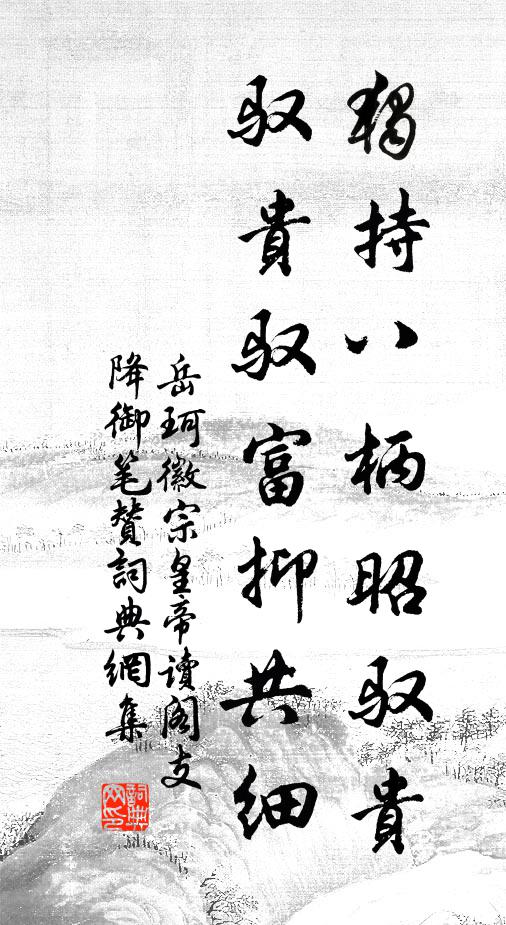 獨持八柄昭馭貴
馭貴馭富抑共細
岳珂徽宗皇帝讀閣支
降御笔贊詞典網集